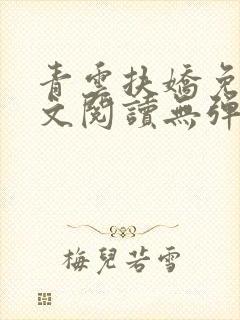 青雲扶嬌免
文閱讀無彈
梅兒若雪